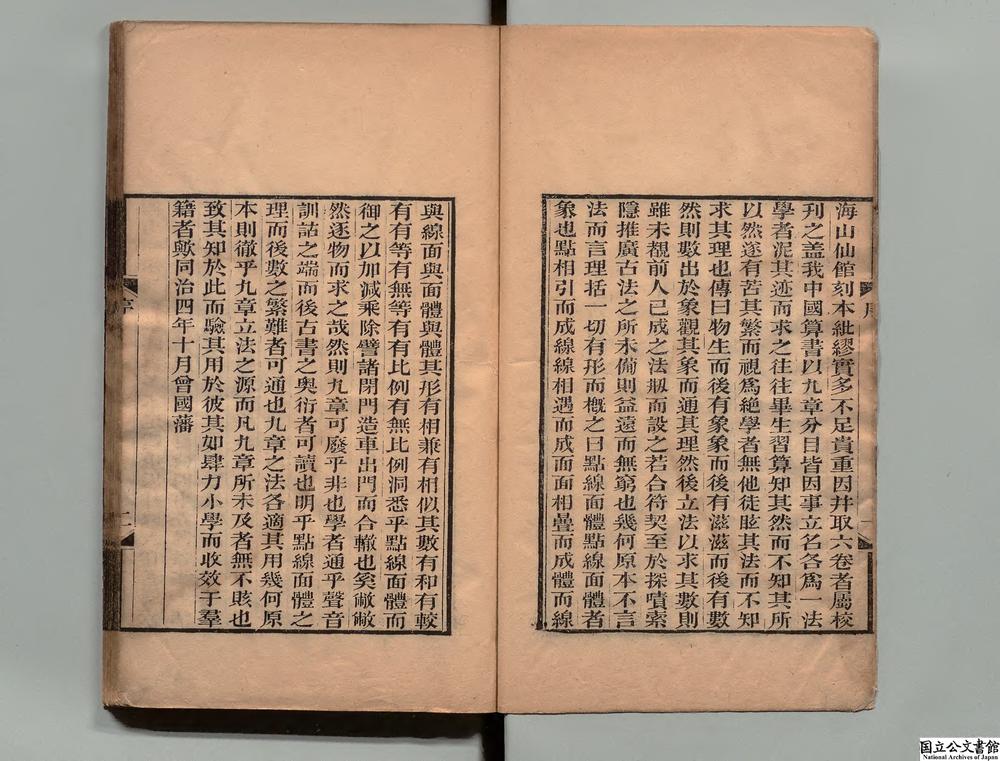 海山仙館刻本紕繆實多不足貴重因并取六卷者屬校
刊之蓋我中國算書以九章分目皆因事立名各爲一法
學者泥其迹而求之往往畢生習算知其然而不知其所
以然遂有苦其繁而視爲絕學者無他徒眩其法而不知
求其理也傳曰物生而後有象象而後有滋滋而後有數
然則數出於象觀其象而通其理然後立法以求其數則
雖未覩前人已成之法刱而設之若合符契至於探嘖索
隱推廣古法之所未備則益遠而無窮也幾何原本不言
法而言理括一切有形而概之曰點線面體點線面體者
象也點相引而成線線相遇而成面面相疊而成體而線
與線面與面體與體其形有相兼有相似其數有和有較
有有等有無等有有比例有無比例洞悉乎點線面體而
御之以加減乘除譬諸閉門造車出門而合轍也奚敝敝
然逐物而求之哉然則九章可廢乎非也學者通乎聲音
訓詁之端而後古書之奧衍者可讀也明乎點線面體之
理而後數之繁難者可通也九章之法各適其用幾何原
本則徹乎九章立法之源而凡九章所未及者無不賅也
致其知於此而驗其用於彼其如肆力小學而收效于羣
籍者歟同治四年十月曾國藩
序
二
国立公文書館
National Archives of Japan